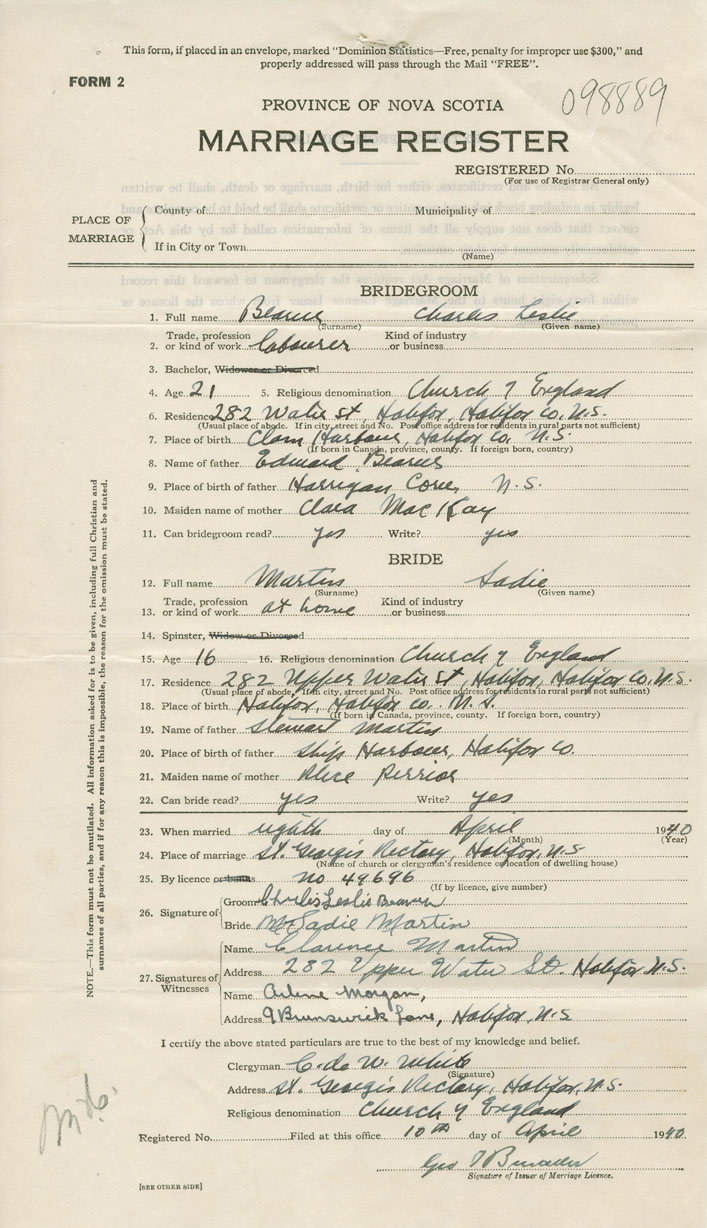 This form, if placed in an envelope, marked "Dominion Statistics—Free, penalty for improper use $300," and
properly addressed will pass through the Mail "FREE".
FORM 2
098889
PROVINCE OF NOVA SCOTIA
MARRIAGE REGISTER
REGISTERED No.
(For use of Registrar General only)
PLACE OF MARRIAGE
County of Municipality of
If in City or Town
(Name)
BRIDEGROOM
1. Full name Charles Leslie
(Surname) (Given name)
2. Trade, profession or kind of work Labourer Kind of industry or business
3. Bachelor, Widower or Divorced
4. Age 21 5. Religious denomination Church of England
6. Residence 282 Water St, Halifax, Halifax Co. N.S.
(Usual place of abode. If in city, street and No. Post office address for residents in rural parts not sufficient)
7. Place of birth Clam Harbour, Halifax Co. N.S.
(If born in Canada, province, county. If foreign born, country)
8. Name of father Edward
9. Place of birth of father Harrigan Cove, N.S.
10. Maiden name of mother Clara MacKay
11. Can bridegroom read? yes Write? yes
BRIDE
12. Full name Martin Sadie
(Surname) (Given name)
13. Trade, profession or kind of work at home Kind of industry or business
14. Spinster, Widow or Divorced
15. Age 16 16. Religious denomination Church of England
17. Residence 282 Upper Water St, Halifax, Halifax Co. N.S.
(Usual place of abode. If in city, street and No. Post office address for residents in rural parts not sufficient)
18. Place of birth Halifax, Halifax Co. N.S.
(If born in Canada, province, county. If foreign born, country)
19. Name of father Stewart Martin
20. Place of birth of father Ship Harbour, Halifax Co.
21. Maiden name of mother Alice
22. Can bride read? yes Write? yes
23. When married eighth day of April 1940
(Month) (Year)
24. Place of marriage St. George's Rectory, Halifax, N.S.
(Name of church or clergyman's residence or location of dwelling house)
25. By licence or banns No 49696
(If by licence, give number)
26. Signature of
Groom Charles Leslie
Bride Sadie Martin
27. Signatures of Witnesses
Name Clarence Martin
Address 282 Upper Water St. Halifax, N.S.
Name Arlene Morgan,
Address 9 Brunswick Lane, Halifax, N.S
I certify the above stated particulars are true to the best of my knowledge and belief.
Clergyman C. de W. White
(Signature)
Address St. George's Rectory, Halifax, N.S.
Religious denomination Church of England
Registered No. Filed at this office 10th day of April 1940
Geo
Signature of Issuer of Marriage Licence.
[SEE OTHER SIDE]
NOTE.—This form must not be mutilated. All information asked for is to be given, including full Christian and
surnames of all parties, and if for any reason this is impossible, the reason for the omission must be stated.